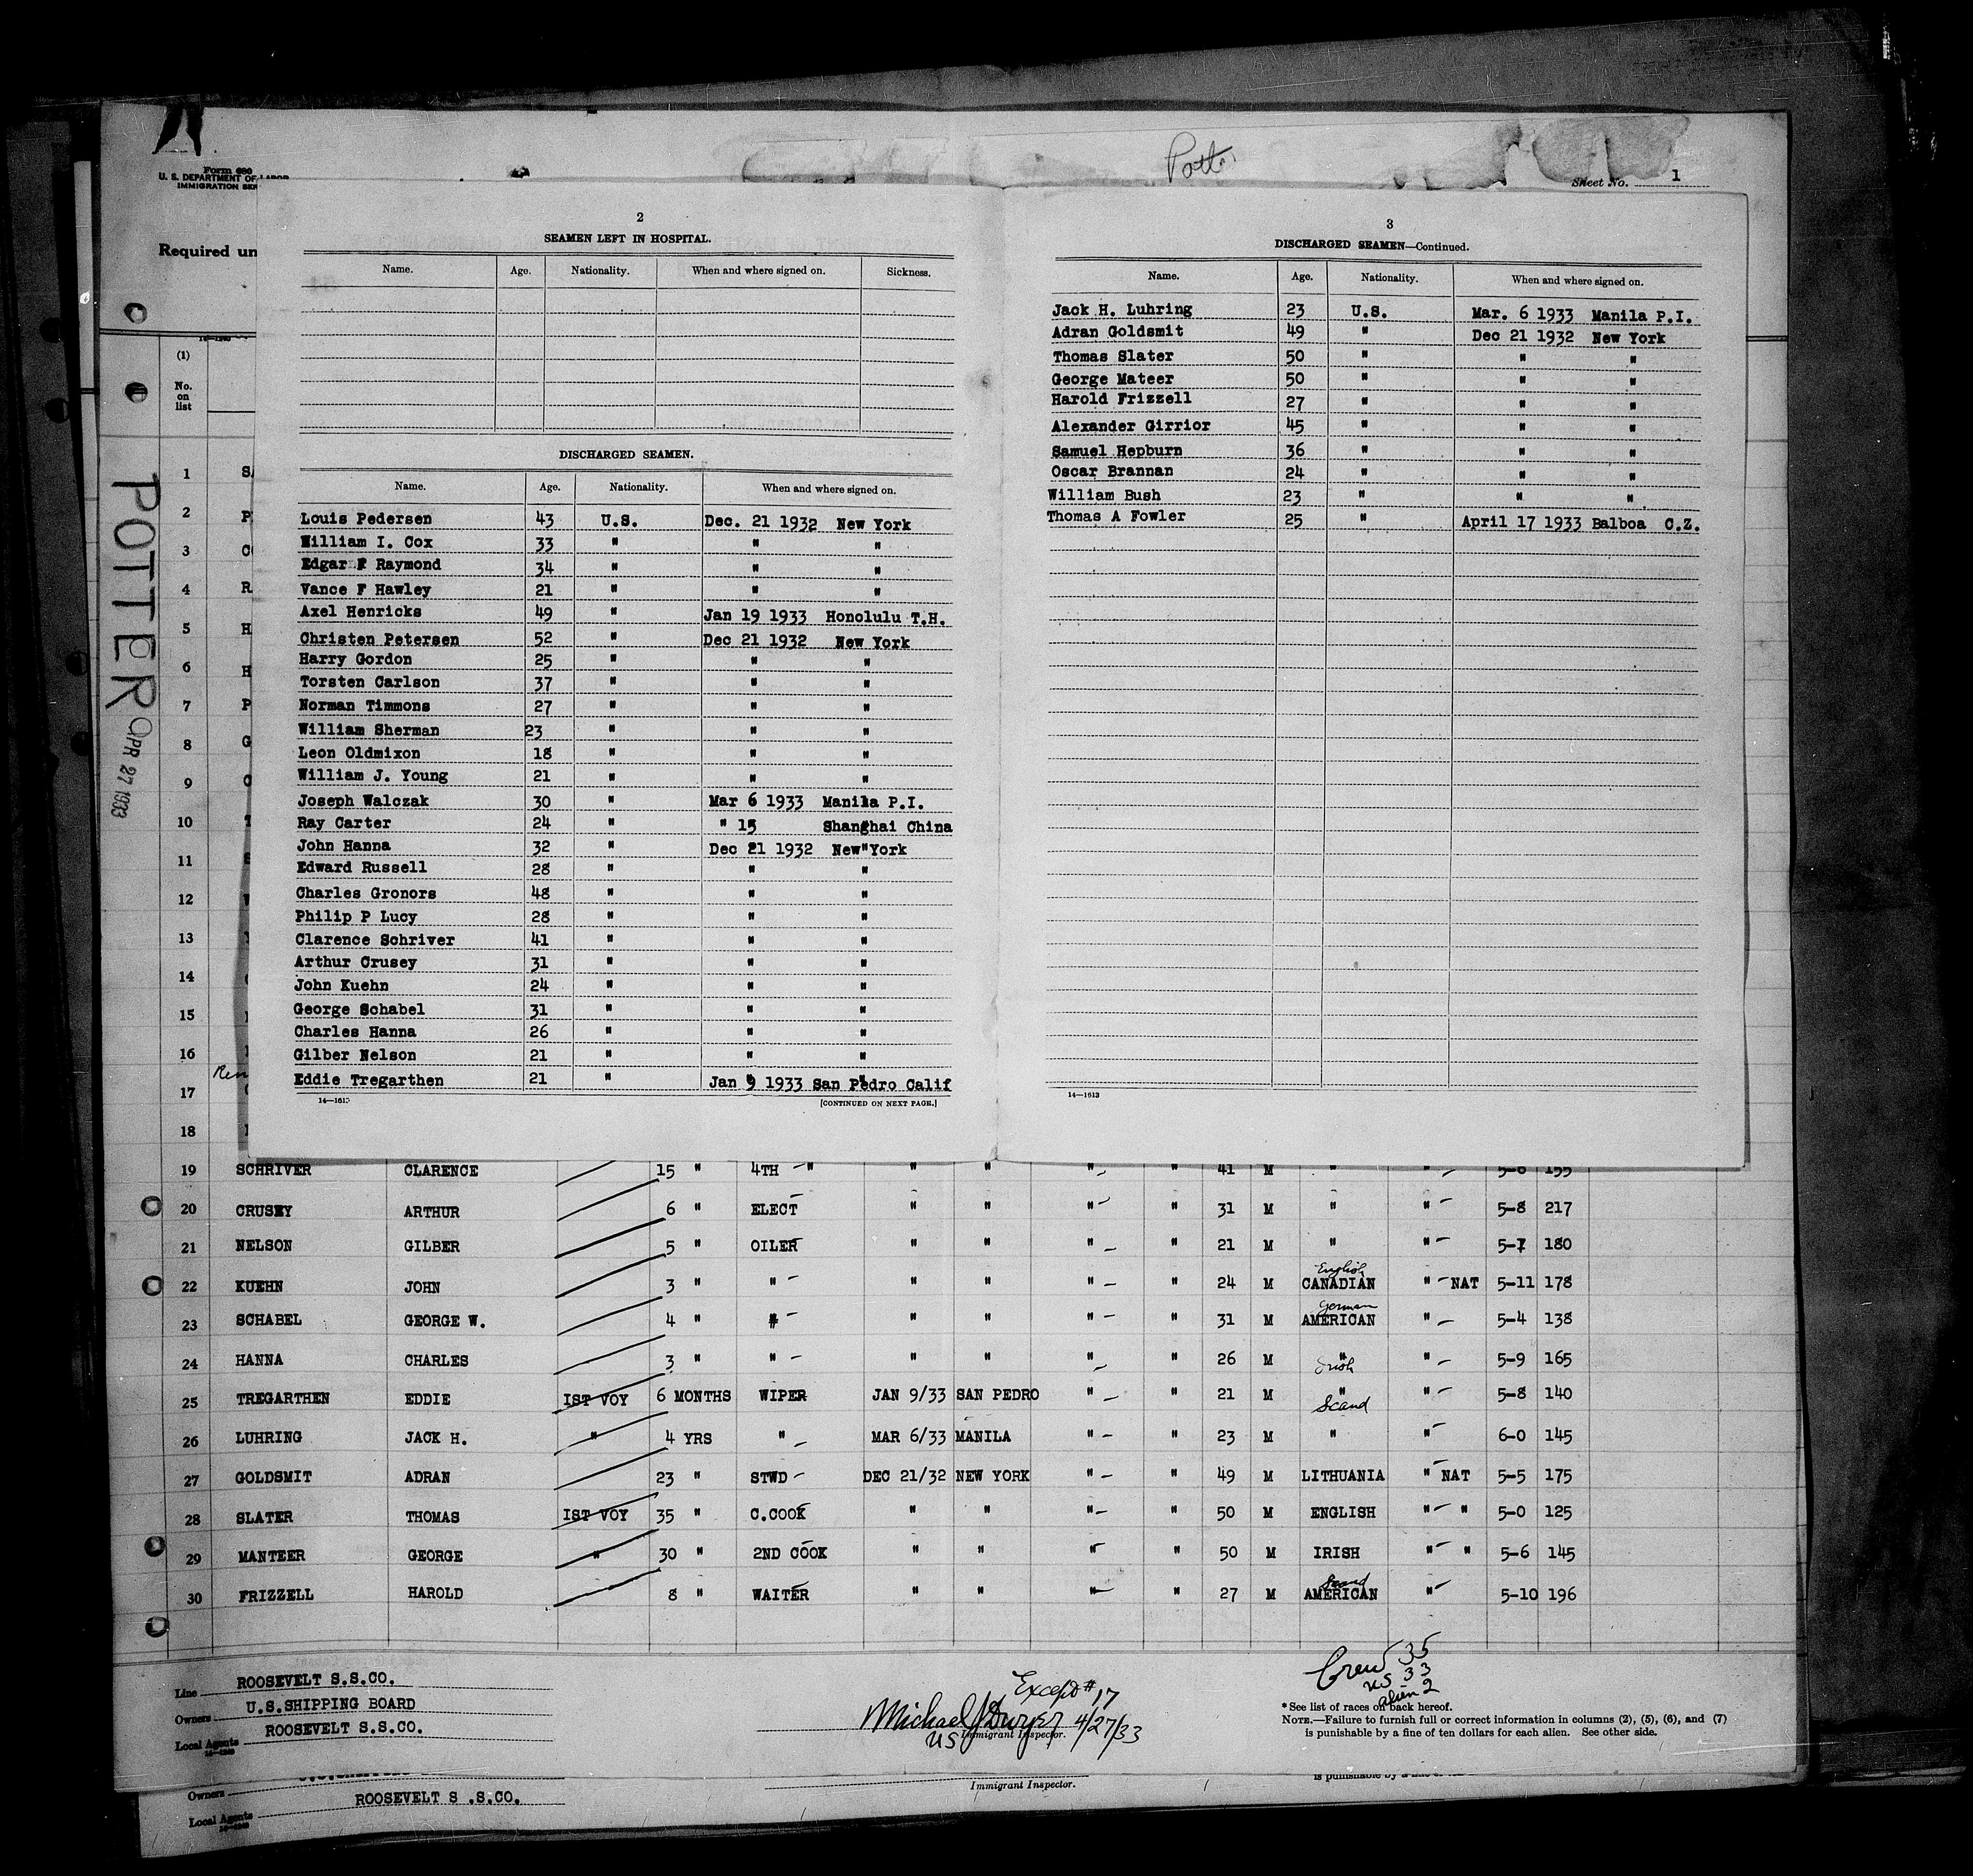 Form 680
U. S. DEPARTMENT OF LABOR
IMMIGRATION SER
Required un
Sheet No. 1
POTTER
APR 27 1933
(1)
No. on list
2
SEAMEN LEFT IN HOSPITAL.
Name. Age. Nationality. When and where signed on. Sickness.
DISCHARGED SEAMEN.
Name. Age. Nationality. When and where signed on.
Louis Pedersen 43 U.S. Dec. 21 1932 New York
William I. Cox 33 " " "
Edgar F Raymond 34 " " "
Vance F Hawley 21 " " "
Axel Henricks 49 " Jan 19 1933 Honolulu T.H.
Christen Petersen 52 " Dec 21 1932 New York
Harry Gordon 25 " " "
Torsten Carlson 37 " " "
Norman Timmons 27 " " "
William Sherman 23 " " "
Leon Oldmixon 18 " " "
William J. Young 21 " " "
Joseph Walczak 30 " Mar 6 1933 Manila P.I.
Ray Carter 24 " " 15 Shanghai China
John Hanna 32 " Dec 21 1932 New York
Edward Russell 28 " " "
Charles Gronors 48 " " "
Philip P Lucy 28 " " "
Clarence Schriver 41 " " "
Arthur Crusey 31 " " "
John Kuehn 24 " " "
George Schabel 31 " " "
Charles Hanna 26 " " "
Gilber Nelson 21 " " "
Eddie Tregarthen 21 " Jan 9 1933 San Pedro Calif
14—1613 [CONTINUED ON NEXT PAGE.]
3
DISCHARGED SEAMEN—Continued.
Name. Age. Nationality. When and where signed on.
Jack H. Luhring 23 U.S. Mar. 6 1933 Manila P.I.
Adran Goldsmit 49 " Dec 21 1932 New York
Thomas Slater 50 " " "
George Mateer 50 " " "
Harold Frizzell 27 " " "
Alexander Girrior 45 " " "
Samuel Hepburn 36 " " "
Oscar Brannan 24 " " "
William Bush 23 " " "
Thomas A Fowler 25 " April 17 1933 Balboa C.Z.
14—1613
1
2
3
4
5
6
7
8
9
10
11
12
13
14
15
16
17
18
19 SCHRIVER CLARENCE 15 " 4TH " " " " " 41 M " " 5-6 155
20 CRUSEY ARTHUR 6 " ELECT " " " " 31 M " " 5-8 217
21 NELSON GILBER 5 " OILER " " " " 21 M " " 5-7 180
22 KUEHN JOHN 3 " " " " " " 24 M English CANADIAN " NAT 5-11 178
23 SCHABEL GEORGE W. 4 " " " " " " 31 M German AMERICAN " 5-4 138
24 HANNA CHARLES 3 " " " " " " 26 M " Irish " 5-9 165
25 TREGARTHEN EDDIE IST VOY 6 MONTHS WIPER JAN 9/33 SAN PEDRO " " 21 M " Scand " 5-8 140
26 LUHRING JACK H. " 4 YRS " MAR 6/33 MANILA " " 23 M " " 6-0 145
27 GOLDSMIT ADRAN 23 " STWD DEC 21/32 NEW YORK " " 49 M LITHUANIA " NAT 5-5 175
28 SLATER THOMAS IST VOY 35 " C.COOK " " " " 50 M ENGLISH " " 5-0 125
29 MANTEER GEORGE " 30 " 2ND COOK " " " " 50 M IRISH " " 5-6 145
30 FRIZZELL HAROLD 8 " WAITER " " " " 27 M Scand AMERICAN " 5-10 196
Line ROOSEVELT S.S.CO.
Owners U.S.SHIPPING BOARD
Local Agents ROOSEVELT S.S.CO.
Except #17
Michael J Dwyer 4/27/33
US Immigrant Inspector.
Crew 35
US 33
alien 2
* See list of races on back hereof.
NOTE.—Failure to furnish full or correct information in columns (2), (5), (6), and (7)
is punishable by a fine of ten dollars for each alien. See other side.
Owners
Immigrant Inspector.
Local Agents ROOSEVELT S .S.CO.